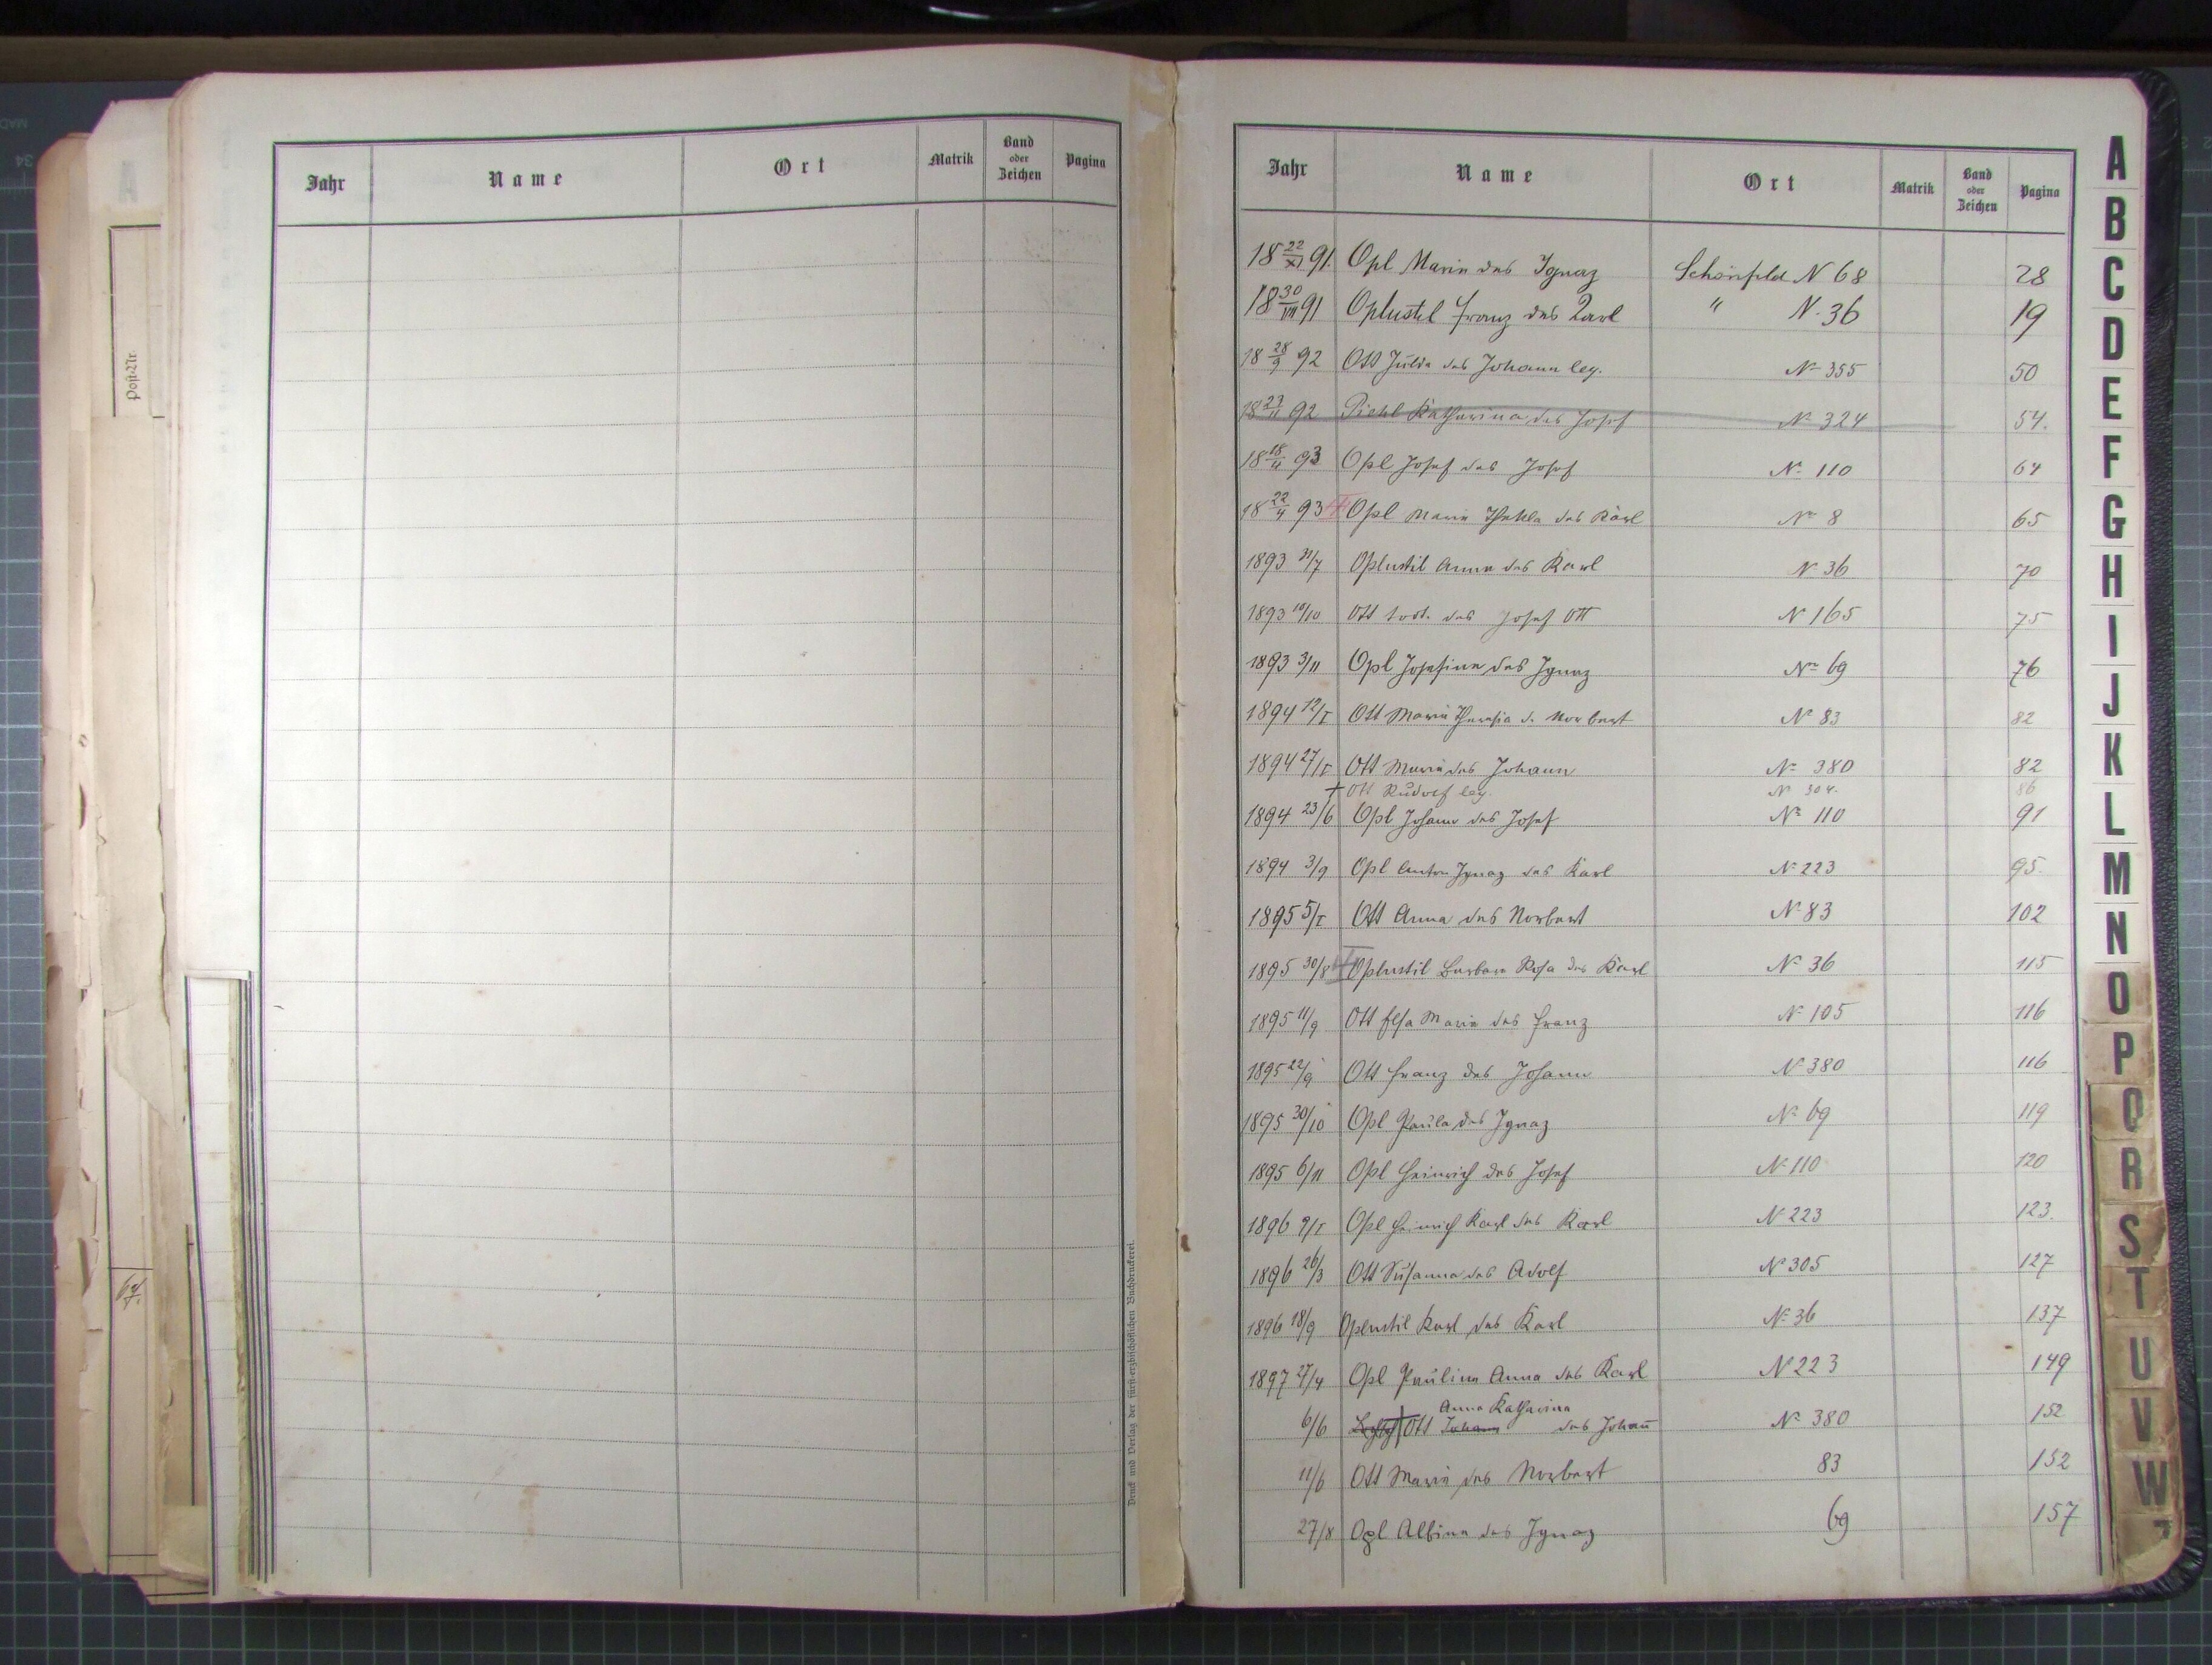 Jahr Name Ort Matrik Band oder Zeichen Pagina
Post-Nr.
Druck und Verlag der fürst-erzbischöflichen Buchdruckerei.
Jahr Name Ort Matrik Band oder Zeichen Pagina
18 22/XI 91. Opl Marie des Ignaz Schönfeld N 68 28
18 30/VIII 91 Oplustil Franz des Karl " N. 36 19
18 28/9 92 Ott Julda des Johann leg. N 355 50
18 23/11 92 Pichl Katharina des Josef N 324 54.
18 18/4 93 Opl Josef des Josef N. 110 64
18 22/4 93 † Opl Maria Thekla des Karl N 8 65
1893 31/7 Oplustil Anna des Karl N 36 70
1893 10/10 Ott todt. des Josef Ott N 165 75
1893 3/11 Opl Josefine des Ignaz No 69 76
1894 12/I Ott Maria Theresia d. Norbert N 83 82
1894 27/I Ott Maria des Johann N. 380 82
† Ott Rudolf leg. N 304. 86
1894 23/6 Opl Johann des Josef No 110 91
1894 3/9 Opl Anton Ignaz des Karl N. 223 95.
1895 5/I Ott Anna des Norbert N. 83 102
1895 30/8 † Oplustil Barbara Rosa des Karl N. 36 115
1895 11/9 Ott Elsa Maria des Franz N. 105 116
1895 22/9 Ott Franz des Johann N. 380 116
1895 30/10 Opl Paula des Ignaz N. 69 119
1895 6/11 Opl Heinrich des Josef N. 110 120
1896 9/I Opl Heinrich Karl des Karl N. 223 123.
1896 26/3 Ott Susanna des Adolf No 305 127
1896 18/9 Oplustil Karl des Karl N. 36 137
1897 27/4 Opl Paulina Anna des Karl N 223 149
Anna Katharina
6/6 † Ott Johann des Johann N. 380 152
11/6 Ott Maria des Norbert 83 152
27/8 Opl Albina des Ignaz 69 157
A
B
C
D
E
F
G
H
I
J
K
L
M
N
O
P
Q
R
S
T
U
V
W